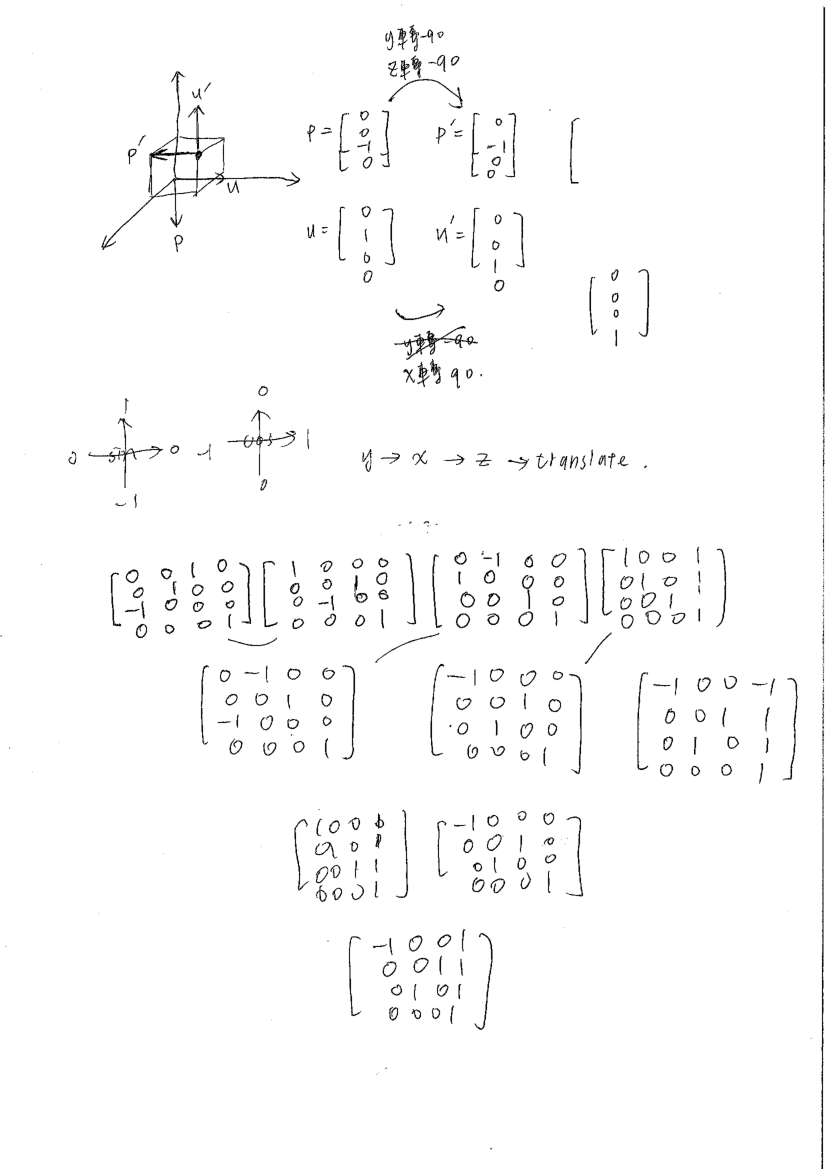 y轉-90
z轉-90
u'
P'
u
P
P = [ 0 0 -1 0 ]
P' = [ 0 -1 0 0 ]
[
u = [ 0 1 0 0 ]
u' = [ 0 0 1 0 ]
[ 0 0 0 1 ]
y轉-90
x轉90.
1
0 sin 0
-1
0
-1 cos 1
0
y → x → z → translate.
[ 0 0 1 0 ] [ 1 0 0 0 ] [ 0 -1 0 0 ] [ 1 0 0 1 ]
[ 0 1 0 0 ] [ 0 0 1 0 ] [ 1 0 0 0 ] [ 0 1 0 1 ]
[ -1 0 0 0 ] [ 0 -1 0 0 ] [ 0 0 1 0 ] [ 0 0 1 1 ]
[ 0 0 0 1 ] [ 0 0 0 1 ] [ 0 0 0 1 ] [ 0 0 0 1 ]
[ 0 -1 0 0 ] [ -1 0 0 0 ] [ -1 0 0 -1 ]
[ 0 0 1 0 ] [ 0 0 1 0 ] [ 0 0 1 1 ]
[ -1 0 0 0 ] [ 0 1 0 0 ] [ 0 1 0 1 ]
[ 0 0 0 1 ] [ 0 0 0 1 ] [ 0 0 0 1 ]
[ 1 0 0 ] [ -1 0 0 0 ]
[ 0 1 ] [ 0 0 1 0 ]
[ 0 0 1 1 ] [ 0 1 0 0 ]
[ 0 0 0 1 ] [ 0 0 0 1 ]
[ -1 0 0 1 ]
[ 0 0 1 1 ]
[ 0 1 0 1 ]
[ 0 0 0 1 ]